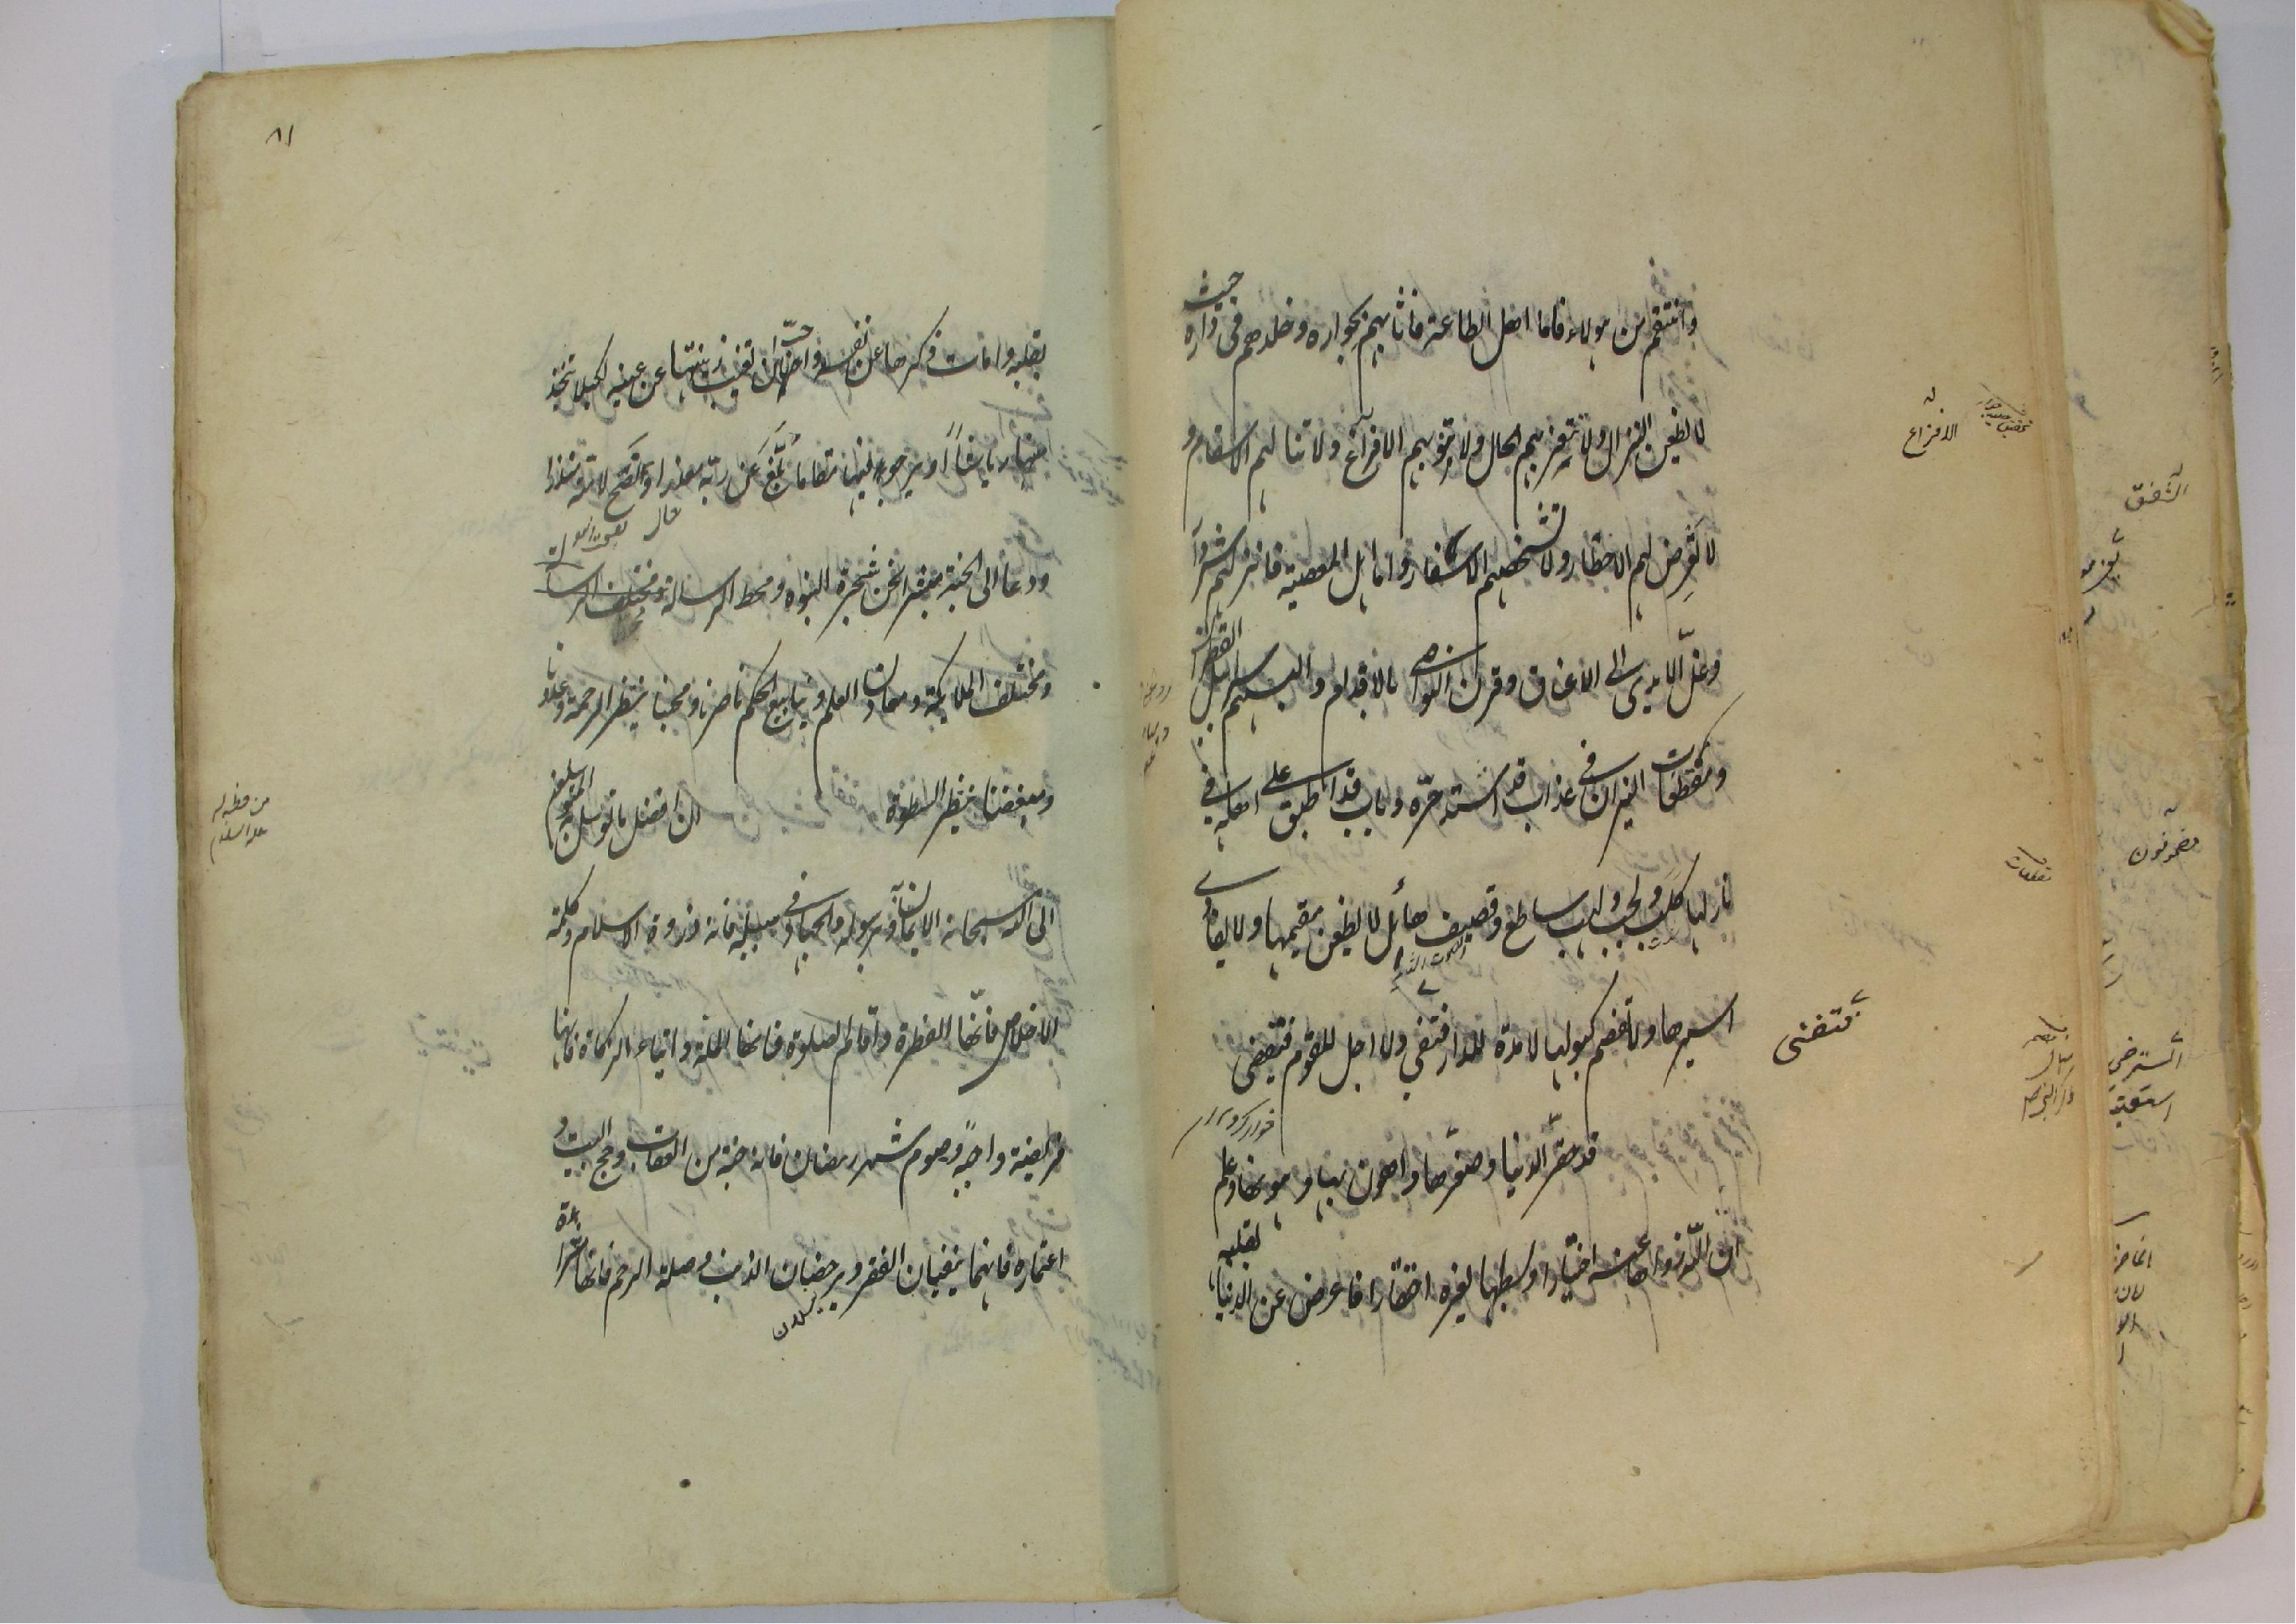 وانتقم من هولاء فاما اهل الطاعة فاثابهم بجواره وخلدهم فى داره حيث
لا يظعن النزال ولا تتغير بهم الحال ولا تنوبهم الافزاع ولا تنالهم الاسقام و
لا تعرض لهم الاخطار ولا تشخصهم الاسفار واما اهل المعصية فانزلهم شر دار
وغلّ الايدى الى الاعناق وقرن النواصى بالاقدام والبسهم سرابيل القطران
ومقطعات النيران فى عذاب قد اشتد حرّه وباب قد اطبق على اهله فى
نار لها كلب ولجب ولهب ساطع وقصيف هائل لا يظعن مقيمها ولا يفادى
اسيرها ولا تفصم كبولها لا مدة للدار فتفنى ولا اجل للقوم فيقضى
قد حقّر الدنيا وصغّرها واهون بها وهونها وعلم
ان اللّه زواها عنه اختيارا وبسطها لغيره احتقارا فاعرض عن الدنيا بقلبه
الافزاع
فتفنى
٨١
بقلبه وامات ذكرها عن نفسه واحبّ ان تغيب زينتها عن عينيه لكيلا يتخذ
منها رياشاً او يرجو فيها مقاما بلّغ عن ربّه معذرا ونصح لامته منذرا
ودعا الى الجنة مبشرا نحن شجرة النبوه ومحط الرسالة
ومختلف الملائكة ومعادن العلم وينابيع الحكم ناصرنا ومحبنا ينتظر الرحمة وعدونا
ومبغضنا ينتظر السطوة ان افضل ما توسل به المتوسلون
الى الله سبحانه الايمان به وبرسوله والجهاد فى سبيله فانه ذروة الاسلام وكلمة
الاخلاص فانّها الفطرة واقام الصلوة فانها الملة وايتاء الزكاة فانها
فريضة واجبة وصوم شهر رمضان فانه جنة من العقاب وحج البيت و
اعتماره فانهما ينفيان الفقر ويرحضان الذنب وصلة الرحم فانها مثراة
يغسلان
من خطبة له
عليه السلام